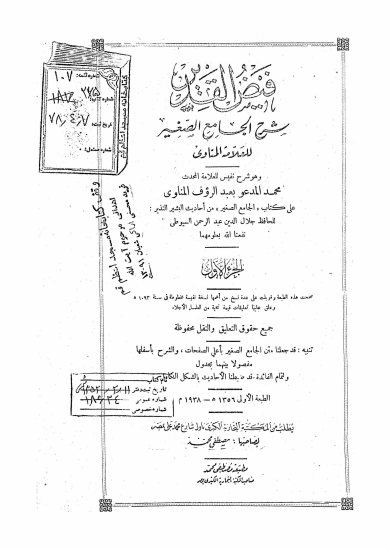 فيض القدير
شرح الجامع الصغير
للعلامة المناوى
وهو شرح نفيس للعلامة المحدث
محمد المدعو بعبد الرؤف المناوى
على كتاب «الجامع الصغير» من أحاديث البشير النذير
للحافظ جلال الدين عبد الرحمن السيوطى
نفعنا الله بعلومهما
الجزء الأول
صححت هذه الطبعة وقوبلت على عدة نسخ من أهمها نسخة نفيسة مخطوطة فى سنة ١٠٩٣ ه
وعلق عليها تعليقات قيمة نخبة من العلماء الأجلاء
جميع حقوق التعليق والنقل محفوظة
تنبيه: قد جعلنا متن الجامع الصغير بأعلى الصفحات، والشرح بأسفلها
مفصولا بينهما بجدول
ولتمام الفائدة قد ضبطنا الأحاديث بالشكل الكامل
الطبعة الأولى ١٣٥٦ ه — ١٩٣٨ م
يطلب من المكتبة التجارية الكبرى بأول شارع محمد على بمصر
لصاحبها: مصطفى محمد
مطبعة مصطفى محمد
صاحب المكتبة التجارية الكبرى بمصر
كتابخانه مسجد اعظم قم
١٠٧
٢٧٥
٧٨/٤/٧
وقف كتابخانه مسجد اعظم قم
نام كتاب
تاريخ ثبت
شماره عمومى
شماره خصوصى